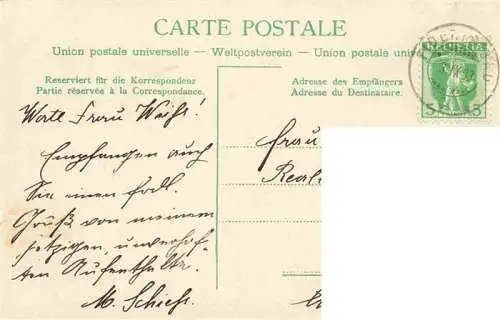 CARTE POSTALE
Union postale universelle – Weltpostverein – Union postale uni
Reserviert für die Korrespondenz
Partie réservée à la Correspondance.
Adresse des Empfängers
Adresse du Destinataire.
HELVETIA
5 5
Werte Frau
Empfangen auch
Sie einen frdl.
Gruß von meinem
jetzigen, unverhof-
ten Aufenthalte.
Frau